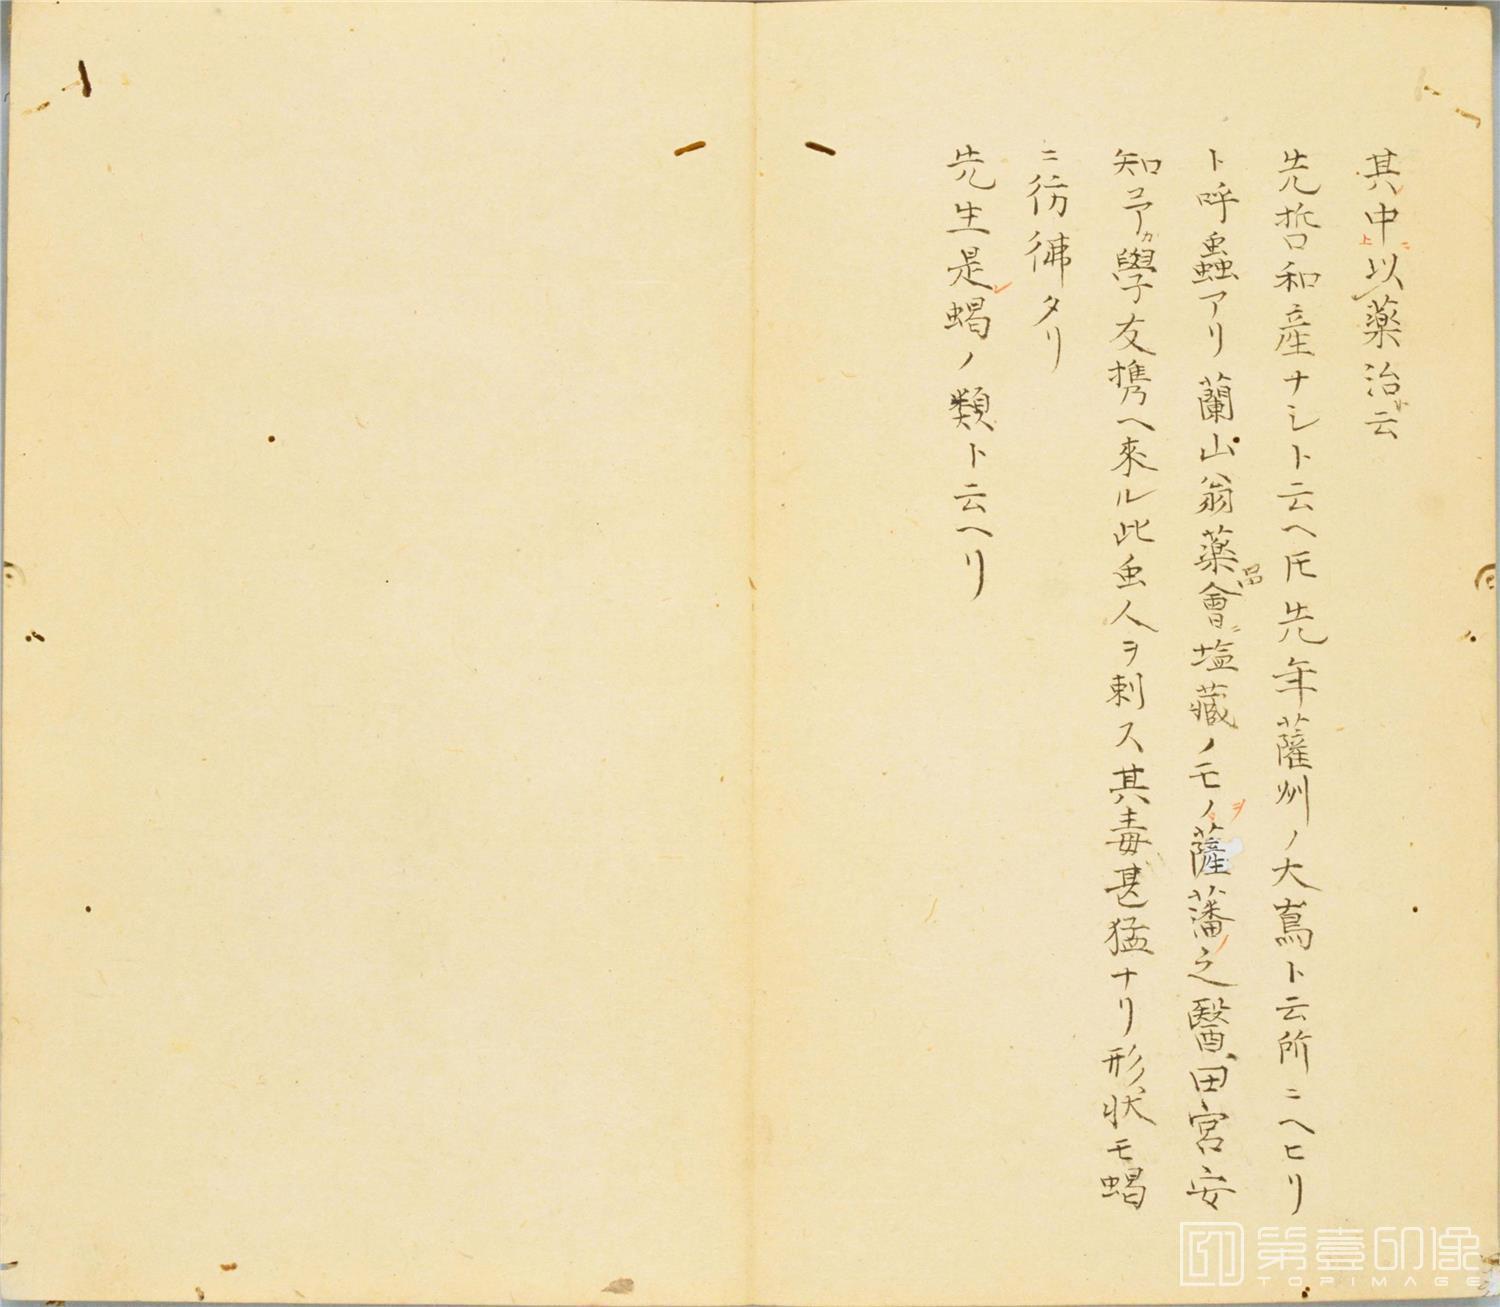 其中以薬治云
先哲和産ナシト云ヘ𪜈先年薩州ノ大嶌ト云所ニヘヒリ
ト呼蟲アリ蘭山翁薬品會ニ塩藏ノモノヲ薩藩之醫田宮安
知ヨリカ學友携ヘ來ル此虫人ヲ刺ス其毒甚猛ナリ形状モ蝎
ニ彷彿タリ
先生是蝎ノ類ト云ヘリ
第壹印像
TOPIMAGE